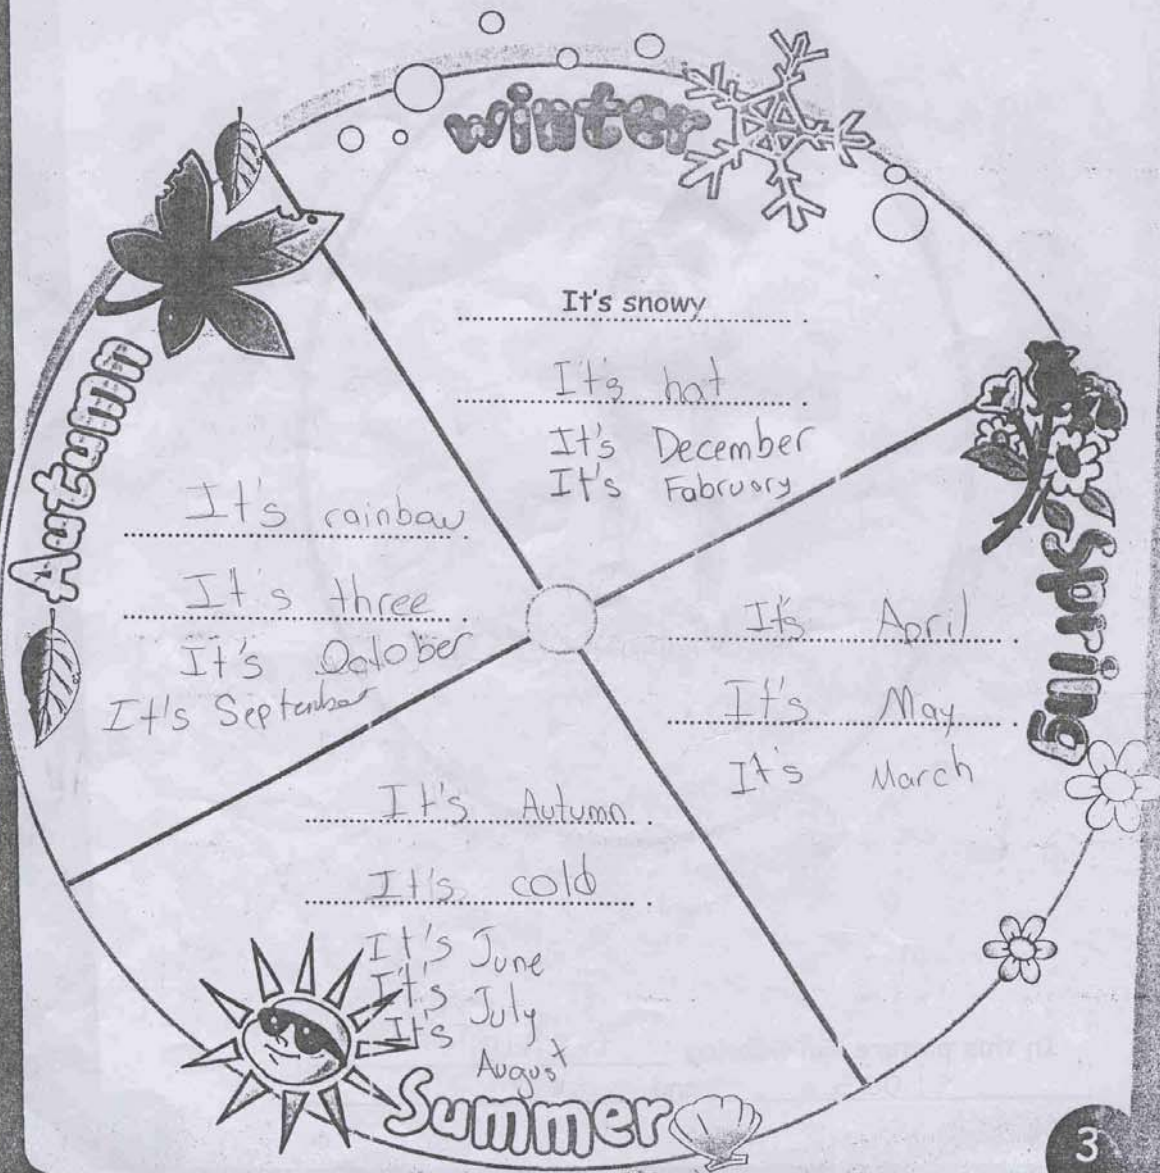 winter
It's snowy
It's hot
It's December
It's Fabruary
Autumn
It's rainbow
It's three
It's October
It's September
Spring
It's April
It's May
It's March
It's Autumn
It's cold
It's June
It's July
It's
August
Summer
3